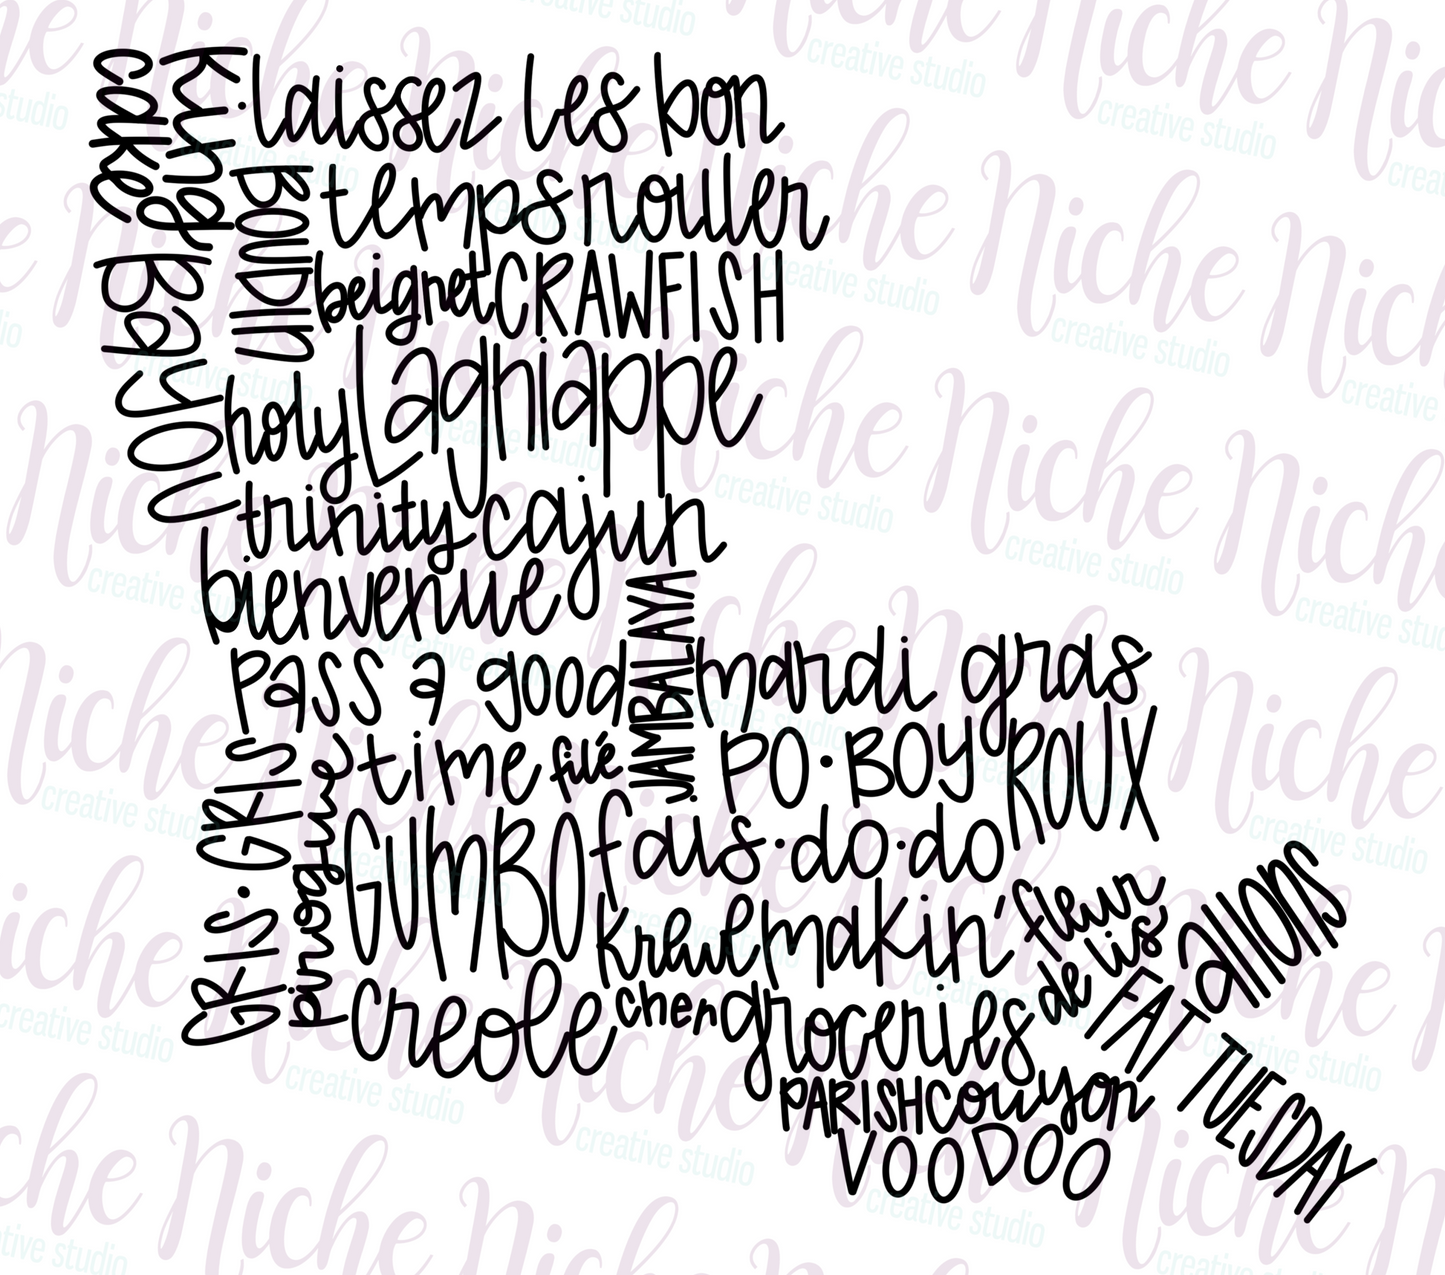 king
cake
laissez les bon
temps rouler
BOUDIN
beignet CRAWFISH
Bayou
holy Lagniappe
trinity cajun
bienvenue
JAMBALAYA
pass a good
mardi gras
time filé
PO·BOY ROUX
GRIS·GRIS
pirogue
GUMBO fais·do·do
krewe makin'
fleur
de lis
allons
creole cher groceries
FAT TUESDAY
PARISH couyon
VOODOO
Niche
creative studio